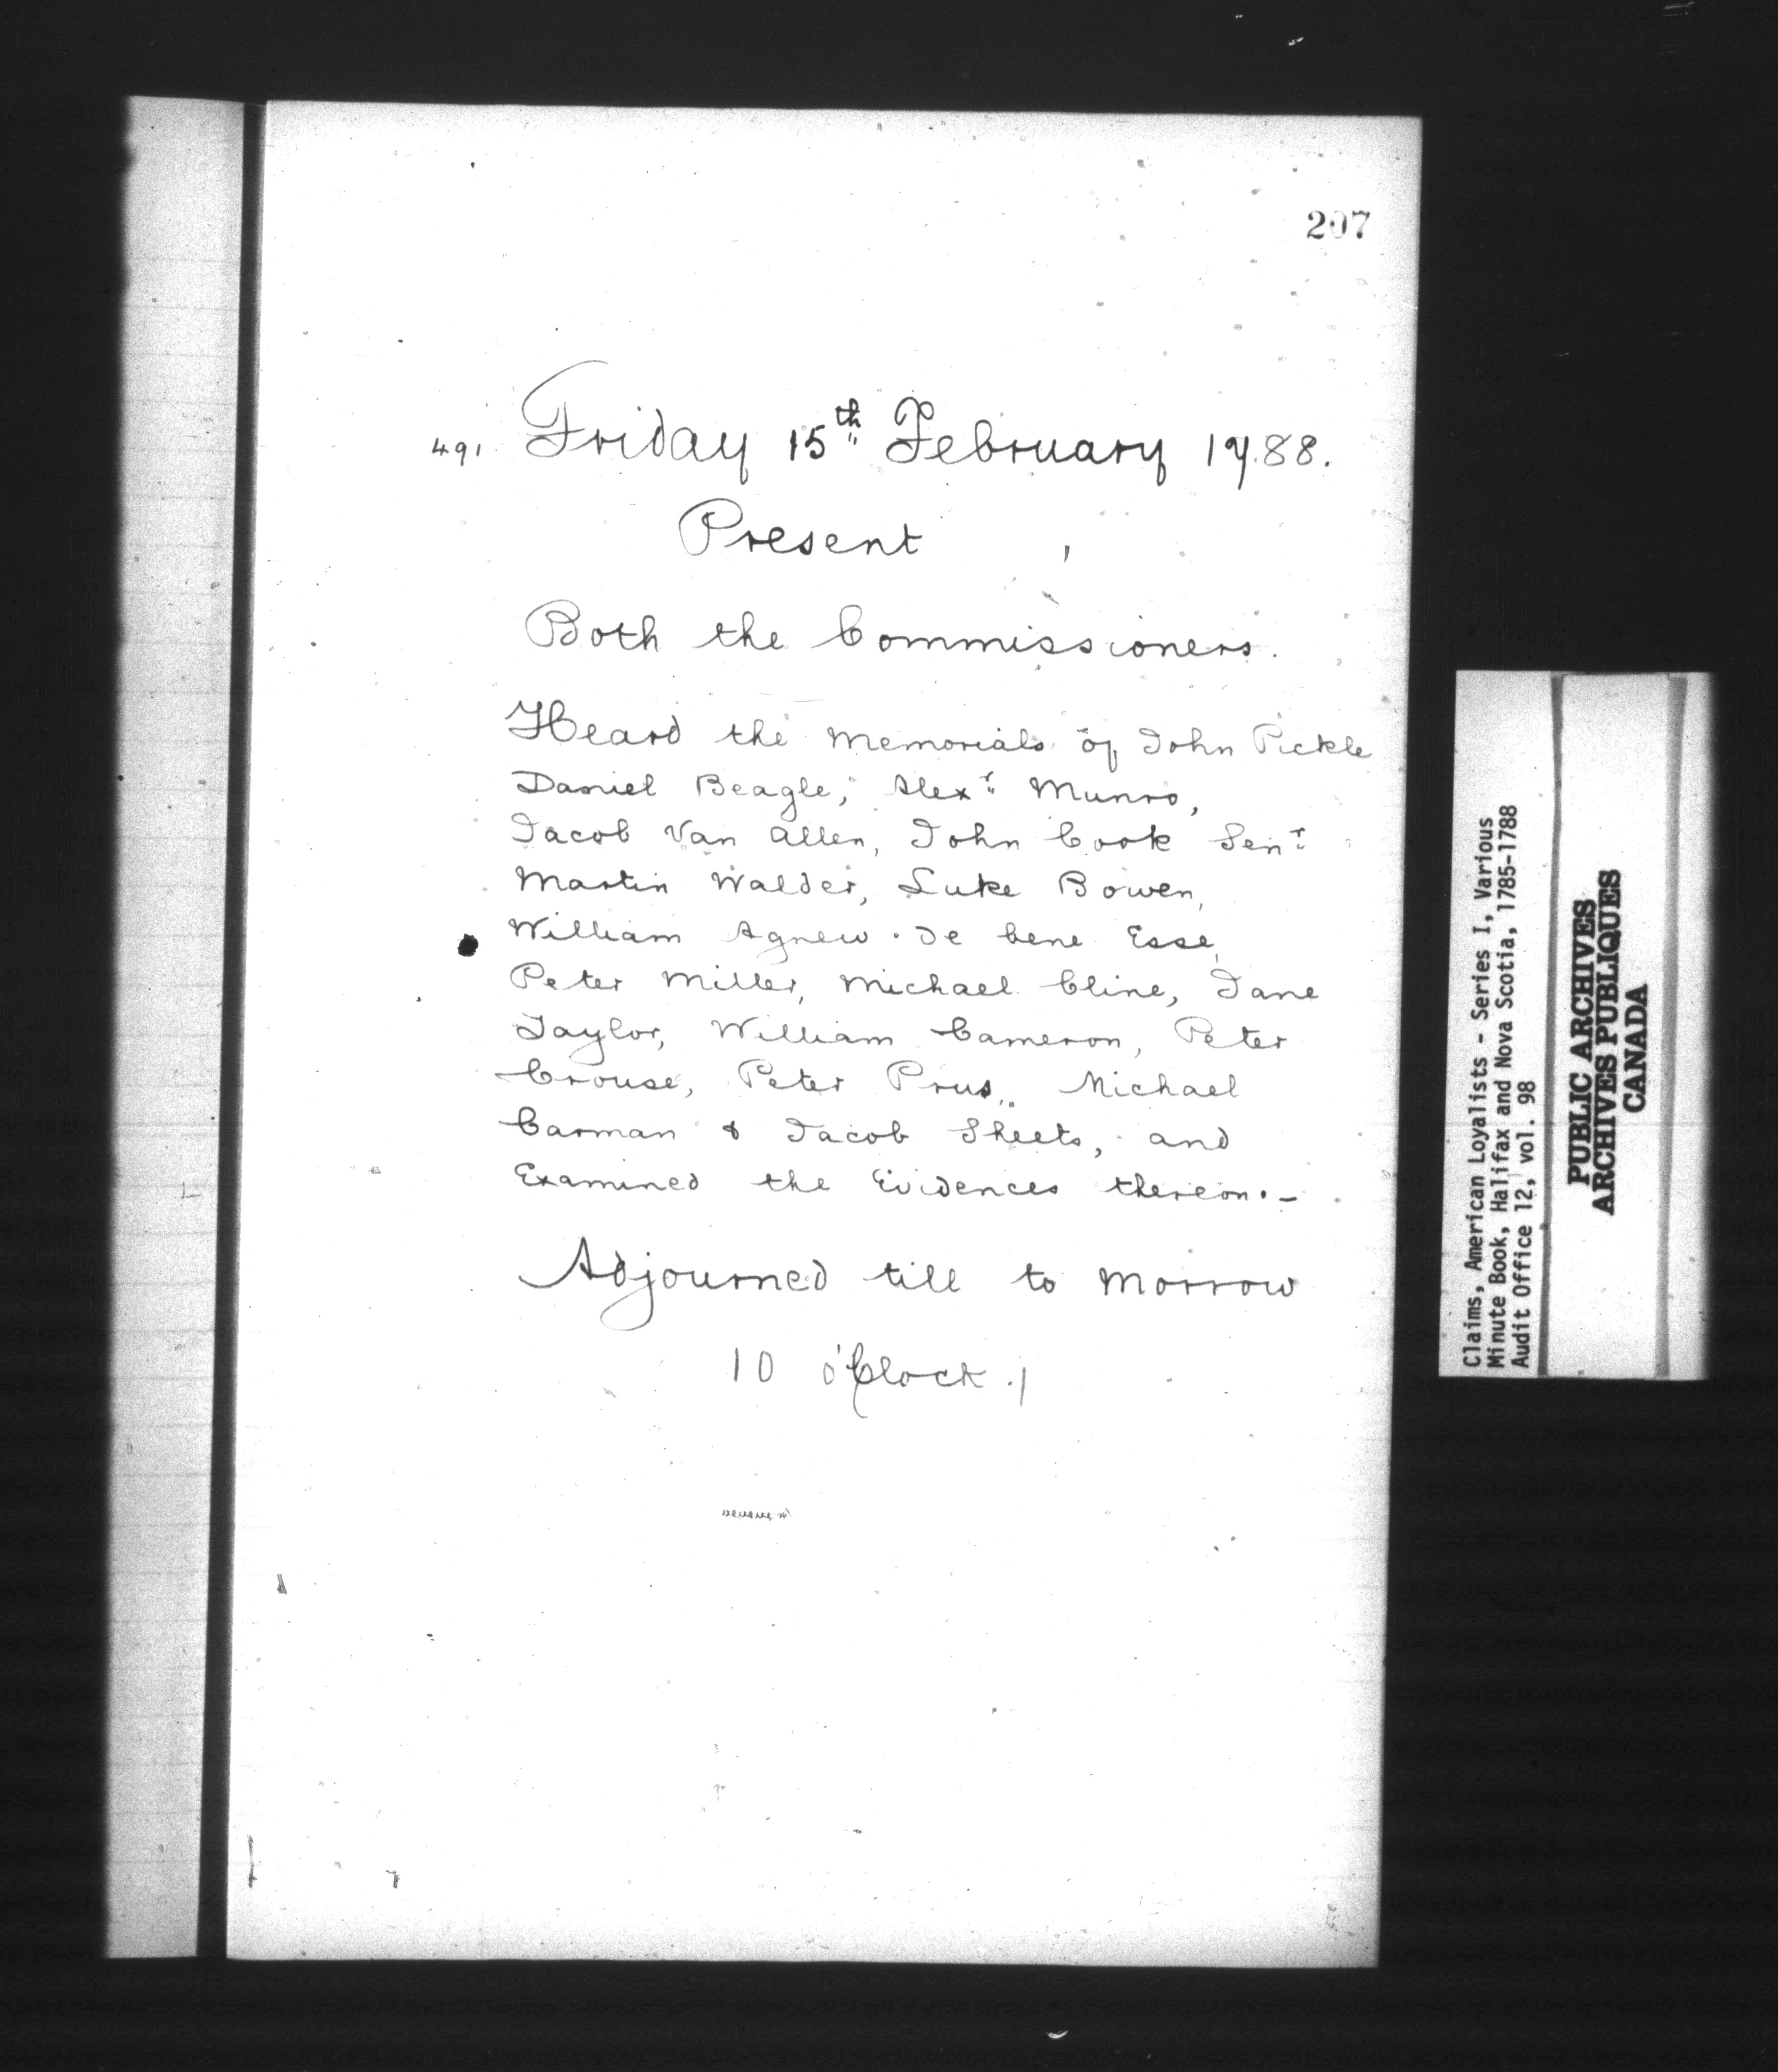 207
491. Friday 15th February 1788.
Present
Both the Commissioners.
Heard the Memorials of John Pickle
Daniel Beagle, Alexr Munro,
Jacob Van Allen, John Cook Senr
Martin Walder, Luke Bowen,
William Agnew . De bene Esse,
Peter Miller, Michael Cline, Jane
Taylor, William Cameron, Peter
Crouse, Peter Prus, Michael
Carman & Jacob Sheets, and
Examined the Evidences thereon.-
Adjourned till to Morrow
10 o'Clock.
Claims, American Loyalists - Series I, Various
Minute Book, Halifax and Nova Scotia, 1785-1788
Audit Office 12, vol. 98
PUBLIC ARCHIVES
ARCHIVES PUBLIQUES
CANADA